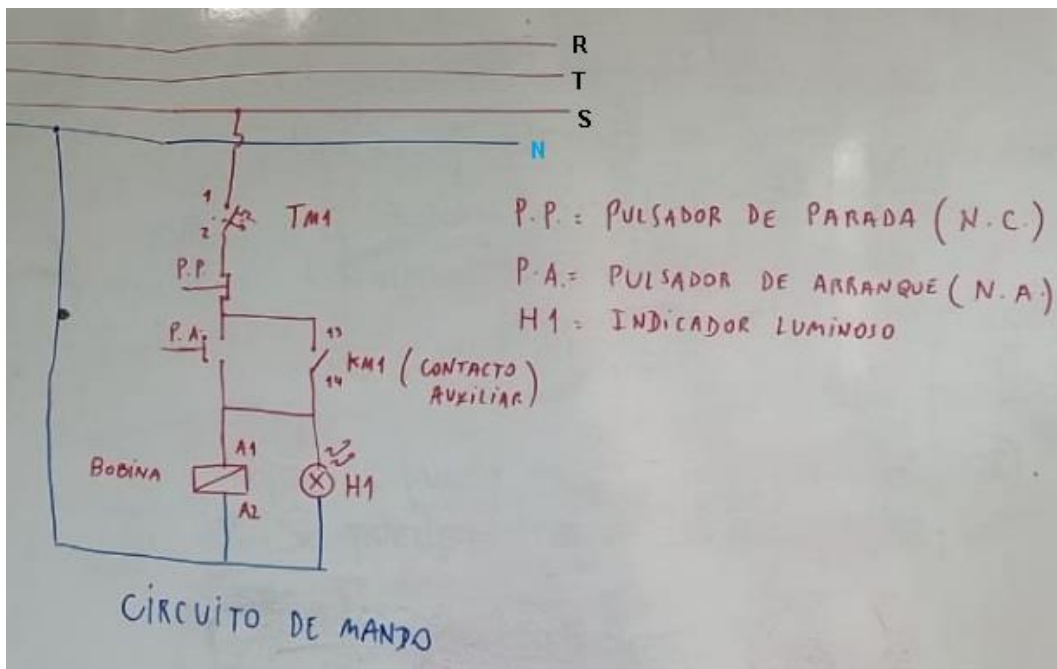 R
T
S
N
1
2
TM1
P.P.
P.A.
13
14
KM1 (CONTACTO
AUXILIAR)
BOBINA
A1
A2
H1
P.P.= PULSADOR DE PARADA (N.C.)
P.A.= PULSADOR DE ARRANQUE (N.A.)
H1 = INDICADOR LUMINOSO
CIRCUITO DE MANDO